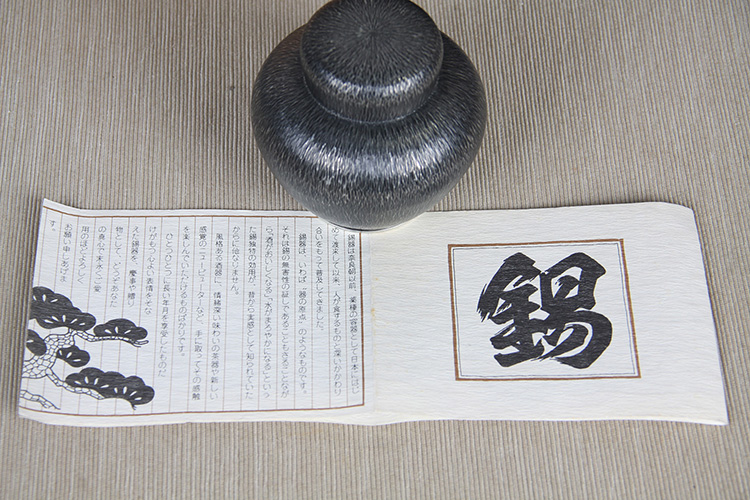 錫
錫器は奈良朝以前、薬種の容器として日本にはじ
めて渡来して以来、人が食するものと深いかかわり
合いをもって普及してきました。
錫器は、いわば“器の原点”のようなものです。
それは錫の無害性の証しであることもさることなが
ら“酒がおいしくなる”“水がまろやかになる”といっ
た錫独特の効用が、昔から実感として知られていた
からに他なりません。
風格ある酒器に、情緒深い味わいの茶器や新しい
感覚のニューピューターなど、手に取ってその感触
を楽しんでいただけるものばかりです。
ひとつひとつに長い年月を享受したものだ
けがもつ心よい表情をそな
えた錫器を、慶事や贈り
物として、どうぞあなた
の真心で末永くご愛
用のほどよろしく
お願い申しあげま
す。